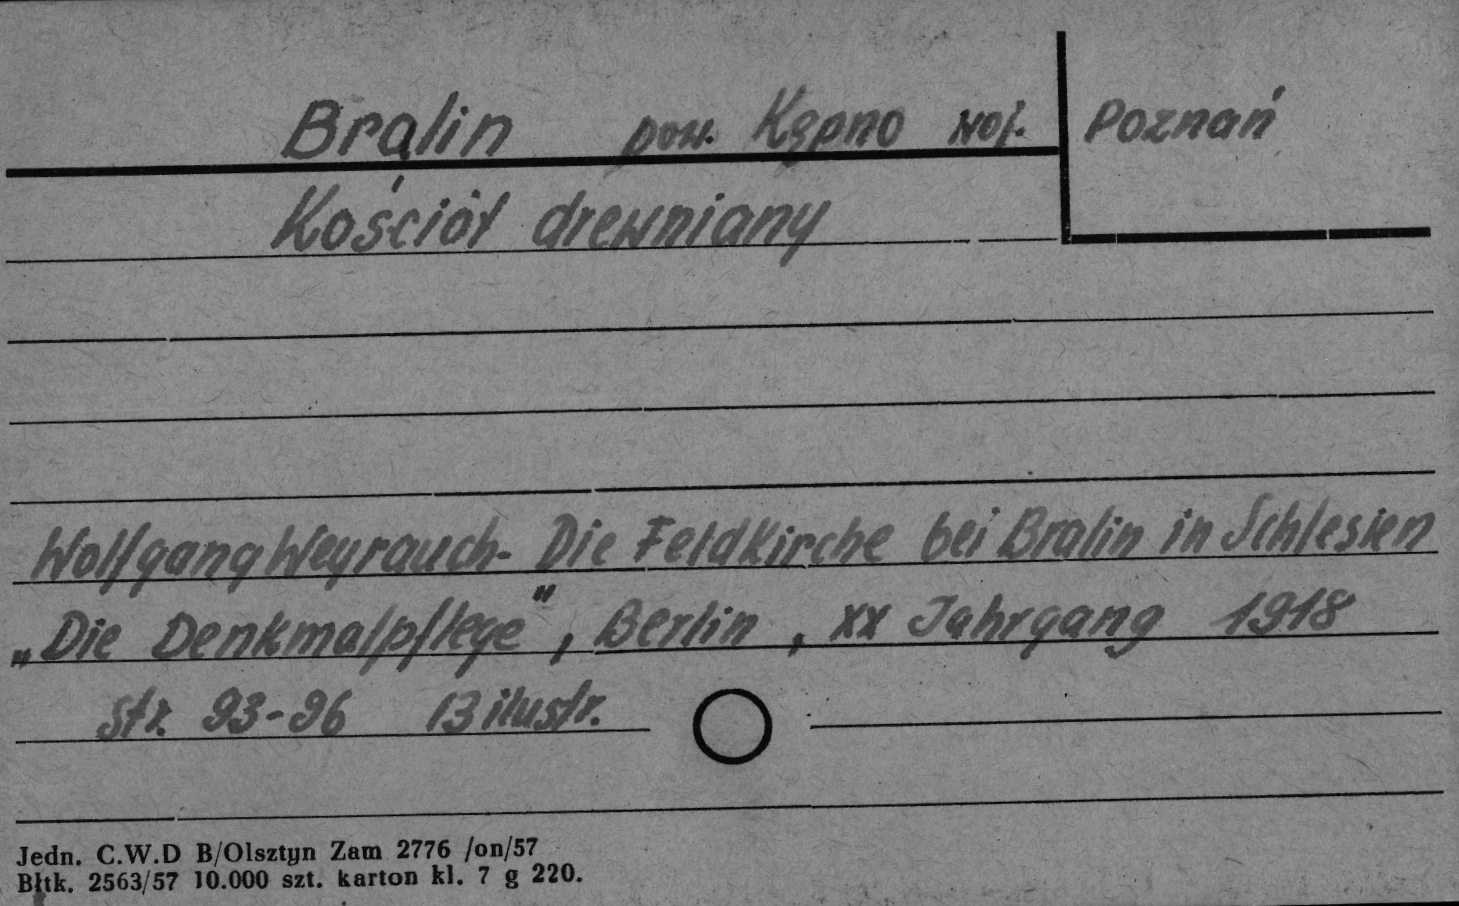 Bralin pow. Kępno woj. Poznań
Kościół drewniany
Wolfgang Weyrauch - Die Feldkirche bei Bralin in Schlesien
„Die Denkmalpflege", Berlin, XX Jahrgang 1918
str. 93-96 13 ilustr.
Jedn. C.W.D B/Olsztyn Zam 2776 /on/57
Błtk. 2563/57 10.000 szt. karton kl. 7 g 220.